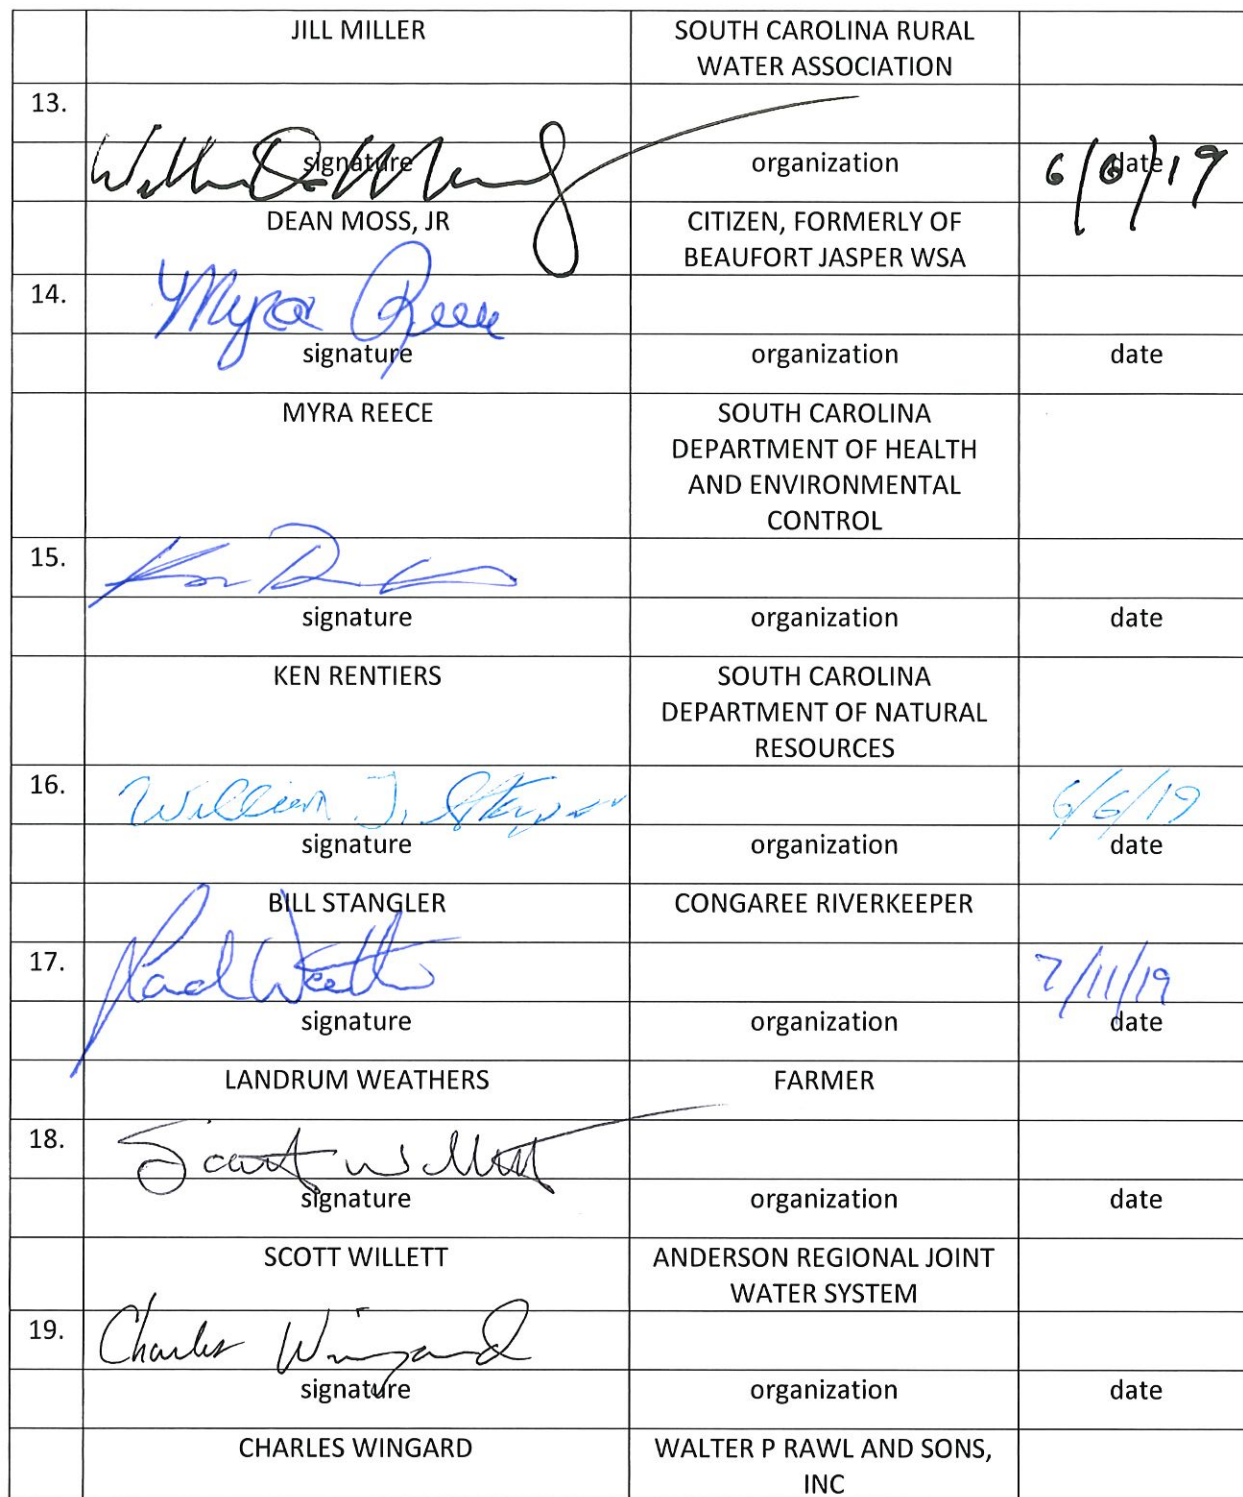 JILL MILLER SOUTH CAROLINA RURAL
WATER ASSOCIATION
13.
signature organization date 6/6/19
DEAN MOSS, JR CITIZEN, FORMERLY OF
BEAUFORT JASPER WSA
14. Myra Reece
signature organization date
MYRA REECE SOUTH CAROLINA
DEPARTMENT OF HEALTH
AND ENVIRONMENTAL
CONTROL
15.
signature organization date
KEN RENTIERS SOUTH CAROLINA
DEPARTMENT OF NATURAL
RESOURCES
16. William J. 6/6/19
signature organization date
BILL STANGLER CONGAREE RIVERKEEPER
17. 7/11/19
signature organization date
LANDRUM WEATHERS FARMER
18. Scott Willett
signature organization date
SCOTT WILLETT ANDERSON REGIONAL JOINT
WATER SYSTEM
19. Charles Wingard
signature organization date
CHARLES WINGARD WALTER P RAWL AND SONS,
INC